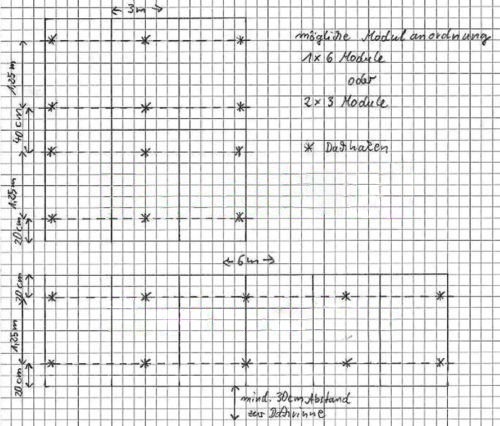 3m
mögliche Modulanordnung
1 x 6 Module
oder
2 x 3 Module
* Dachhaken
1,25m
40cm
1,25m
20cm
6m
20cm
1,25m
20cm
mind. 30cm Abstand
zur Dachrinne